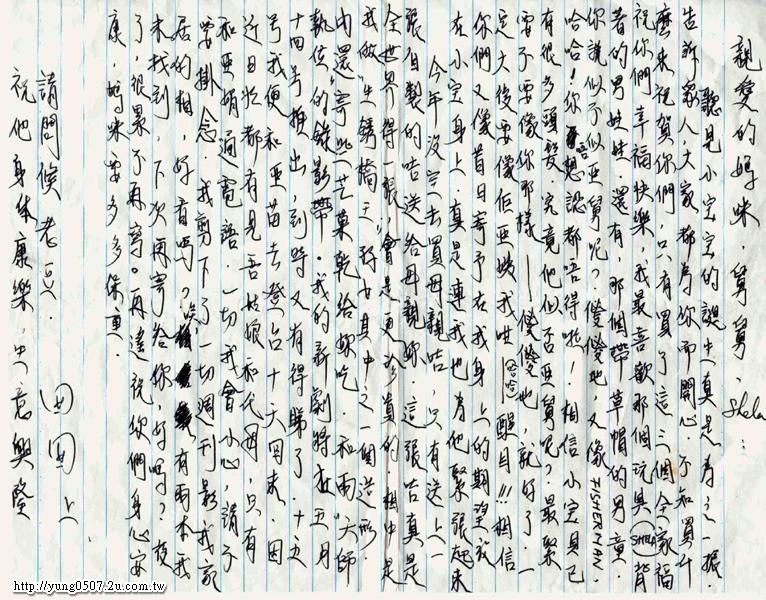 親愛的媽咪,舅舅、Shela:
聽見小宝宝的誕生真是為之一振.
告訴家人,大家都為你而開心.不知買什
麼來祝賀你們,只有買了這三個全家福
祝你們幸福快樂,我最喜歡那個玩具(SHELA)背
著的男娃娃.還有,那個帶草帽的男童.
你說似不似亞舅呢?傻傻地,又像FISHERMAN.
哈哈!你想認都唔得啦!相信小宝具已
有很多頭髮.究竟他似否亞舅呢?最緊
要不要像你那樣——傻傻地,就好了.一
定大後要像佢亞姨我咁(哈哈)醒目!!!相信
你們又像昔日寄予在我身上的期望放
在小宝身上.真是連我也為他緊張起來
今年没空去買母親咭.只有送上一
張自製的咭送給母親你.這張咭真是
全世界得一張,會是更珍貴的.相中是
我做"生銹橋王"其中之一個造形
內還寄些芒菓乾給你吃.和兩"大師
執位"的錄影帶.我的新劇將在五月
十四号推出,到時又有得睇了.十五
号我便和亞苗去登台十六回來.因
近日都有見姑娘和代母,只有
和亞娟通電話.一切我會小心,請不
要掛念.我剪下了一切週刊影我家
居的相,好看嗎?有兩本我
未找到,下次再寄給你,好嗎?夜
了,很累不再寫.再遙祝你們身心安
康.媽咪要多多保重.
囡囡上
請問候老豆.
祝他身体康樂,生意興隆
http://yung0507.2u.com.tw